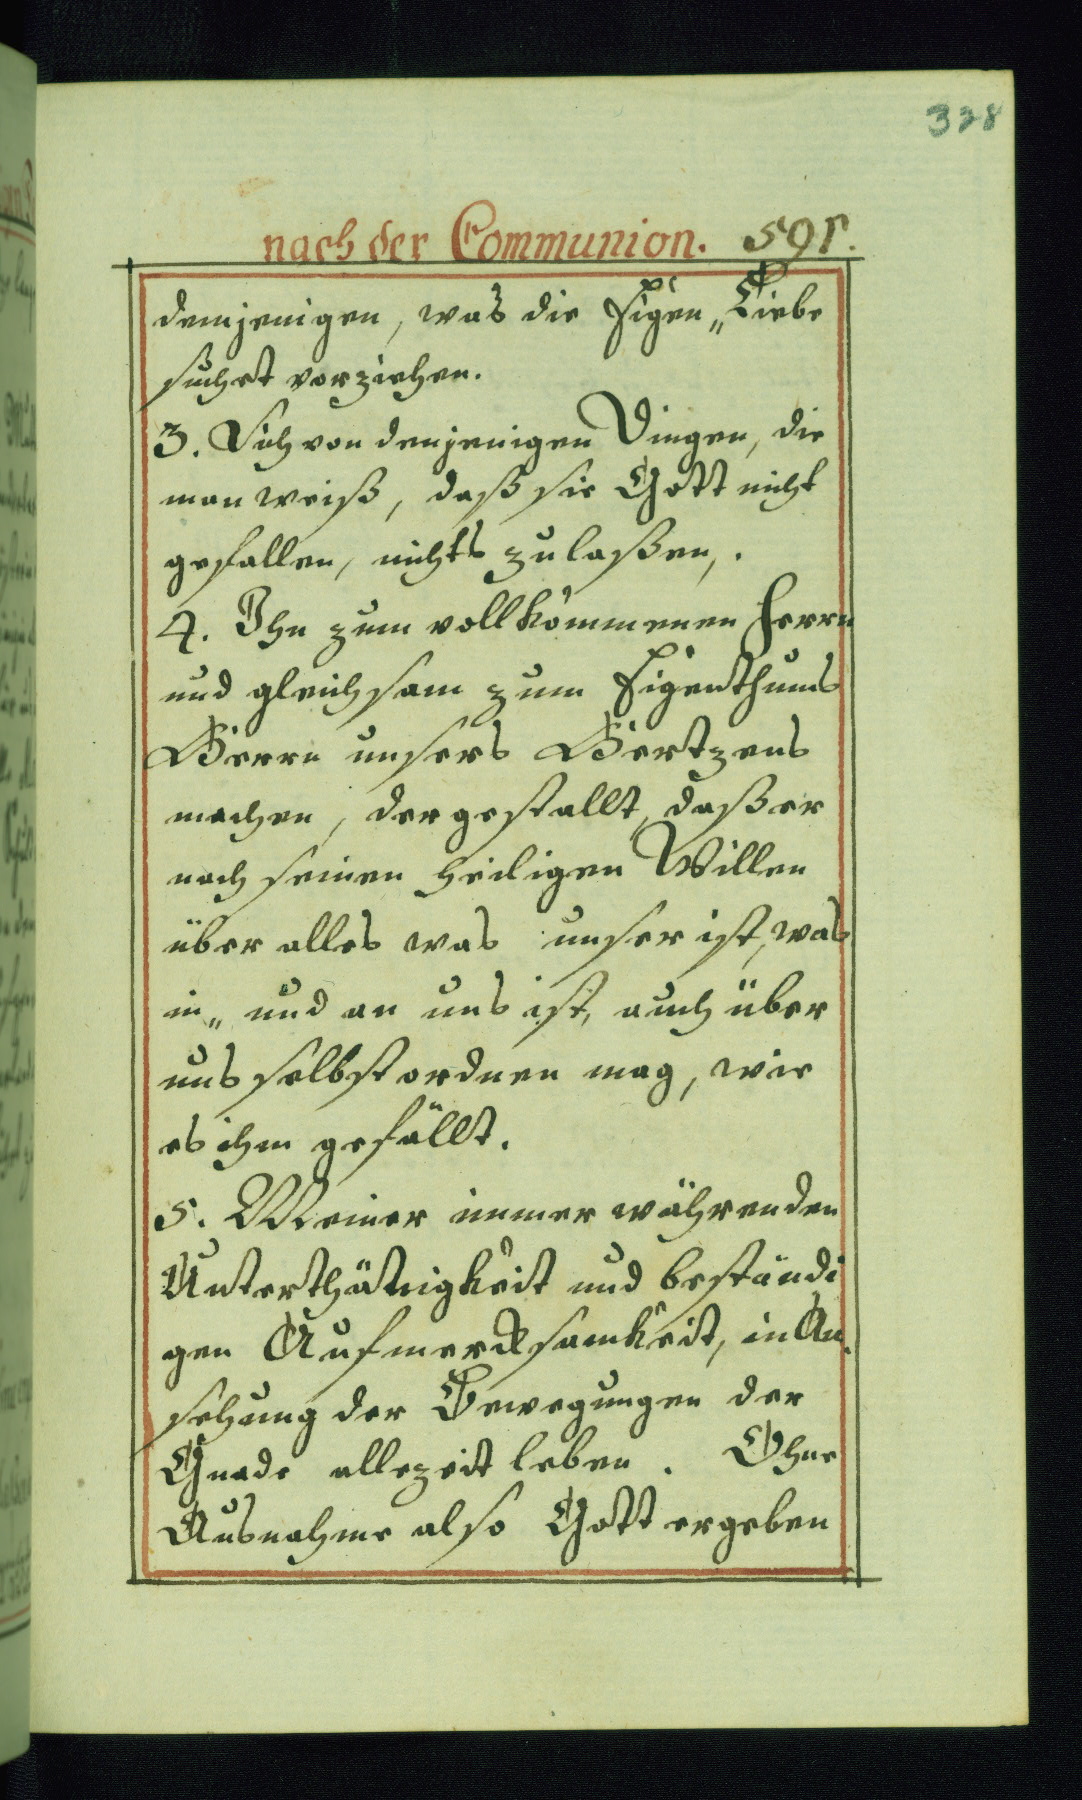 328
nach der Communion. 591.
demjenigen, was die Eigen„Liebe
suchet vorziehen.
3. Sich von denjenigen Dingen, die
man weiß, daß sie Gott nicht
gefallen, nichts zulaßen,.
4. Ihn zum vollkommenen Herrn
und gleichsam zum Eigenthums
Herrn unsers Hertzens
machen, dergestallt, daß er
nach seinen heiligen Willen
über alles was unser ist, was
in„ und an uns ist, auch über
uns selbst ordnen mag, wie
es ihm gefällt.
5. Meiner immer währenden
Unterthänigkeit und beständi
gen Aufmercksamkeit, in An„
sehung der Bewegungen der
Gnade allezeit leben. Ohne
Ausnahme also Gott ergeben